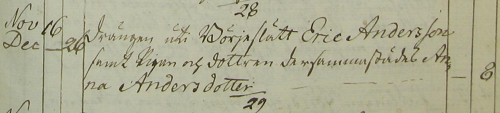 28
Nov 16 Drängen uti Börjeslätt Eric Andersson
Dec 26 samt Pigan och dottren dersammastädes An-
na Andersdotter — 8
29
Nov